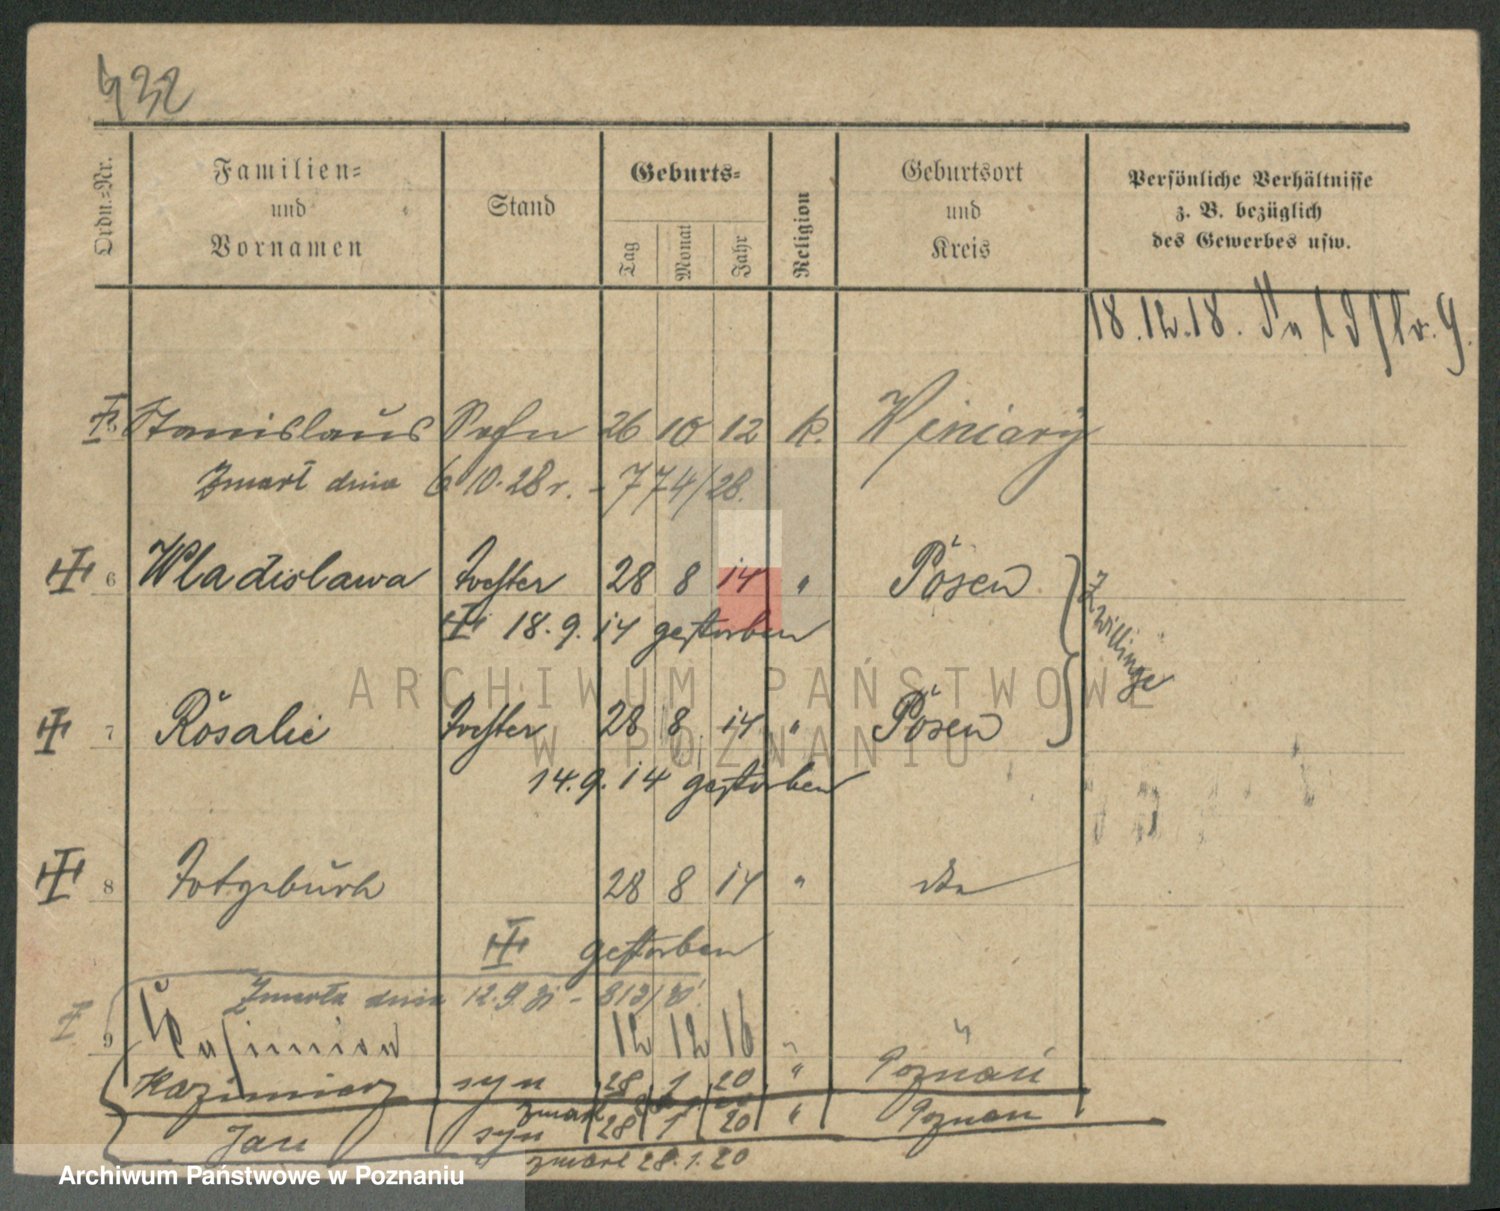 432
Ordn.-Nr.
Familien-
und
Vornamen
Stand
Geburts-
Tag
Monat
Jahr
Religion
Geburtsort
und
Kreis
Persönliche Verhältnisse
z. B. bezüglich
des Gewerbes usw.
18.12.18.
Stanislaus Sohn 26 10 12 k. Winiary
Zmarł dnia 6 10.28 r. - 774/28.
6 Wladislawa Tochter 28 8 14 " Posen
18.9.14 gestorben
Zwillinge
7 Rosalie Tochter 28 8 14 " Posen
14.9.14 gestorben
8 Totgeburt 28 8 14 " dto
gestorben
Zmarła dnia 12.9. - 813/
9 12 12 16 "
Kazimierz syn 28 1 20 " Poznań
zmarł
Jan syn 28 1 20 " Poznań
zmarł 28.1.20
ARCHIWUM PAŃSTWOWE
W POZNANIU
Archiwum Państwowe w Poznaniu